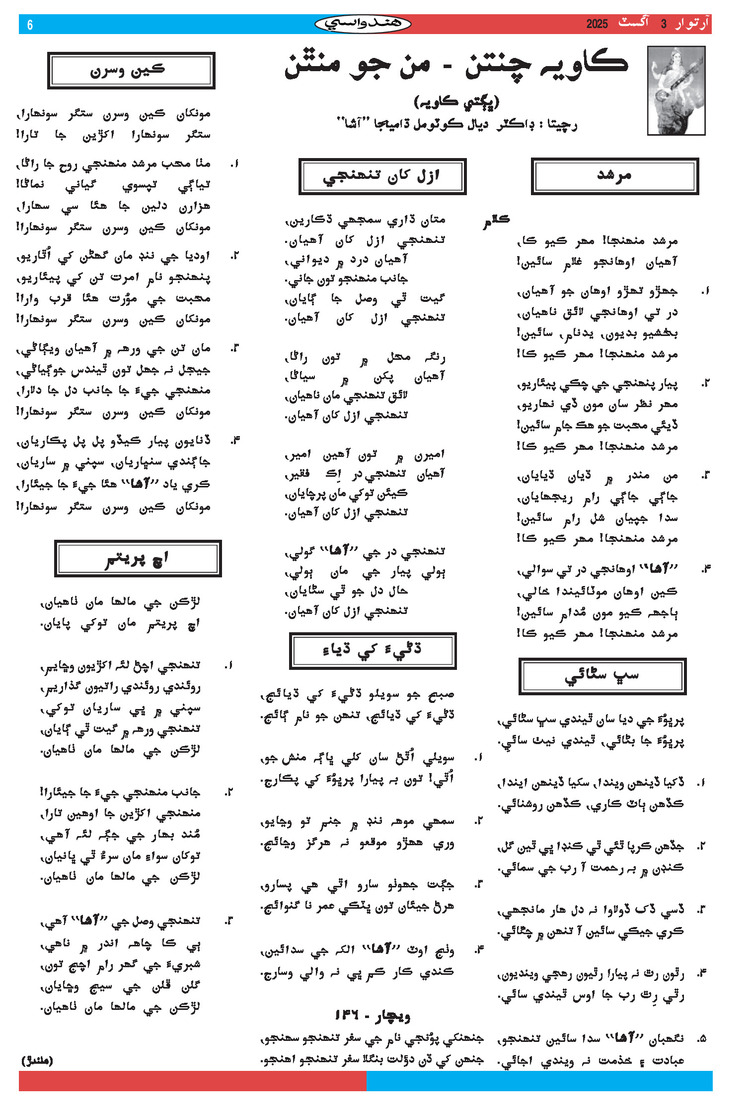 آرتوار 3 آگسٽ 2025
هندواسي
6
ڪاويہ چنتن - من جو منٿن
(ڀڳتي ڪاويہ)
رچيتا : ڊاڪٽر ديال ڪوٽومل ڌاميجا ”آشا“
مرشد
ڪلام
مرشد منھنجا! مھر ڪيو ڪا،
آهيان اوهانجو غلام سائين!
۱. جھڙو تھڙو اوهان جو آهيان،
در تي اوهانجي لائق ناهيان،
بخشيو بديون، بدنام، سائين!
مرشد منھنجا! مھر ڪيو ڪا!
۲. پيار پنھنجي جي چڪي پيئاريو،
مھر نظر سان مون ڏي نھاريو،
ڏيئي محبت جو هڪ جام سائين!
مرشد منھنجا! مھر ڪيو ڪا!
۳. من مندر ۾ ڌيان ڌيايان،
جاڳي جاڳي رام ريجھايان،
سدا جپيان شل رام سائين!
مرشد منھنجا! مھر ڪيو ڪا!
۴. ”آشا“ اوهانجي در تي سوالي،
ڪين اوهان موٽائيندا خالي،
ٻاجھہ ڪيو مون مُدام سائين!
مرشد منھنجا! مھر ڪيو ڪا!
سڀ سڻائي
پرڀوءَ جي ديا سان ٿيندي سڀ سڻائي،
پرڀوءَ جا بڻائي، ٿيندي نيٺ سائي.
۱. ڏکيا ڏينھن ويندا، سکيا ڏينھن ايندا،
ڪڏهن ٻاٽ ڪاري، ڪڏهن روشنائي.
۲. جڏهن ڪرپا ٿئي ٿي ڪنڊا ڀي ٿين گل،
ڪنڊن ۾ بہ رحمت آ رب جي سمائي.
۳. ڏسي ڏک ڏولاوا نہ دل هار مانجھي،
ڪري جيڪي سائين آ تنھن ۾ چڱائي.
۴. رڻون رٿ نہ پيارا رٿيون رهجي وينديون،
رٿي رِٿ رب جا اوس ٿيندي سائي.
۵. نگھبان ”آشا“ سدا سائين تنھنجو،
عبادت ۽ خذمت نہ ويندي اجائي.
ازل کان تنھنجي
متان ڌاري سمجھي ڌڪارين،
تنھنجي ازل کان آهيان.
آهيان درد ۾ ديواني،
جانب منھنجو تون جاني.
گيت ٿي وصل جا ڳايان،
تنھنجي ازل کان آهيان.
رنگہ محل ۾ تون راڻا،
آهيان پکن ۾ سياڻا،
لائق تنھنجي مان ناهيان،
تنھنجي ازل کان آهيان.
اميرن ۾ تون آهين امير،
آهيان تنھنجي در اِڪ فقير،
ڪيئن توکي مان پرچايان،
تنھنجي ازل کان آهيان.
تنھنجي در جي ”آشا“ گولي،
ٻولي پيار جي مان ٻولي،
حال دل جو ٿي سڻايان،
تنھنجي ازل کان آهيان.
ڌڻيءَ کي ڌياءِ
صبح جو سويلو ڌڻيءَ کي ڌيائج،
ڌڻيءَ کي ڌيائج، تنھن جو نام ڳائج.
۱. سويلي اُٿڻ سان کلي ڀاڳہ منش جو،
اُٿي! تون بہ پيارا پرڀوءَ کي پڪارج.
۲. سمھي موهہ ننڊ ۾ جنم تو وڃايو،
وري ههڙو موقعو نہ هرگز وڃائج.
۳. جڳت جھونو سارو اٿي هي پسارو،
هرڻ جيئان تون ڀٽڪي عمر نا گنوائج.
۴. وٺج اوٽ ”آشا“ الکہ جي سدائين،
ڪندي ڪار ڪم ڀي نہ والي وسارج.
ويچار - ۱۴۶
جنھنکي پوُنجي نام جي سفر تنھنجو سھنجو،
جنھن کي ڏن دؤلت بنگلا سفر تنھنجو اهنجو.
ڪين وسرن
مونکان ڪين وسرن ستگر سونھارا،
ستگر سونھارا اکڙين جا تارا!
۱. مٺا محب مرشد منھنجي روح جا راڻا،
تياڳي تپسوي گياني نماڻا!
هزارن دلين جا هئا سي سھارا،
مونکان ڪين وسرن ستگر سونھارا!
۲. اوديا جي ننڊ مان گھڻن کي اُٿاريو،
پنھنجو نام امرت تن کي پيئاريو،
محبت جي موُرت هئا قرب وارا!
مونکان ڪين وسرن ستگر سونھارا!
۳. مان تن جي ورهہ ۾ آهيان ويڳاڻي،
جيجل نہ جھل تون ٿيندس جوڳياڻي،
منھنجي جيءَ جا جانب دل جا دلارا،
مونکان ڪين وسرن ستگر سونھارا!
۴. ڏنايون پيار ڪيڏو پل پل پڪاريان،
جاڳندي سنڀاريان، سپني ۾ ساريان،
ڪري ياد ”آشا“ هئا جيءَ جا جيئارا،
مونکان ڪين وسرن ستگر سونھارا!
اچ پريتم
لڙڪن جي مالھا مان ٺاهيان،
اچ پريتم مان توکي پايان.
۱. تنھنجي اچڻ لئہ اکڙيون وڇايم،
روئندي روئندي راتيون گذاريم،
سپني ۾ ڀي ساريان توکي،
تنھنجي ورهہ ۾ گيت ٿي ڳايان،
لڙڪن جي مالھا مان ٺاهيان.
۲. جانب منھنجي جيءَ جا جيئارا!
منھنجي اکڙين جا اوهين تارا،
مُند بھار جي جڳہ لئہ آهي،
توکان سواءِ مان سرءُ ٿي ڀانيان،
لڙڪن جي مالھا مان ٺاهيان.
۳. تنھنجي وصل جي ”آشا“ آهي،
ٻي ڪا چاهہ اندر ۾ ناهي،
شبريءَ جي گھر رام اچج تون،
گلن ڦلن جي سيج وڇايان،
لڙڪن جي مالھا مان ٺاهيان.
(هلندڙ)